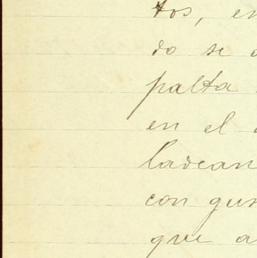 tos, en
do se
palta
en el
ladean
con gus
que a